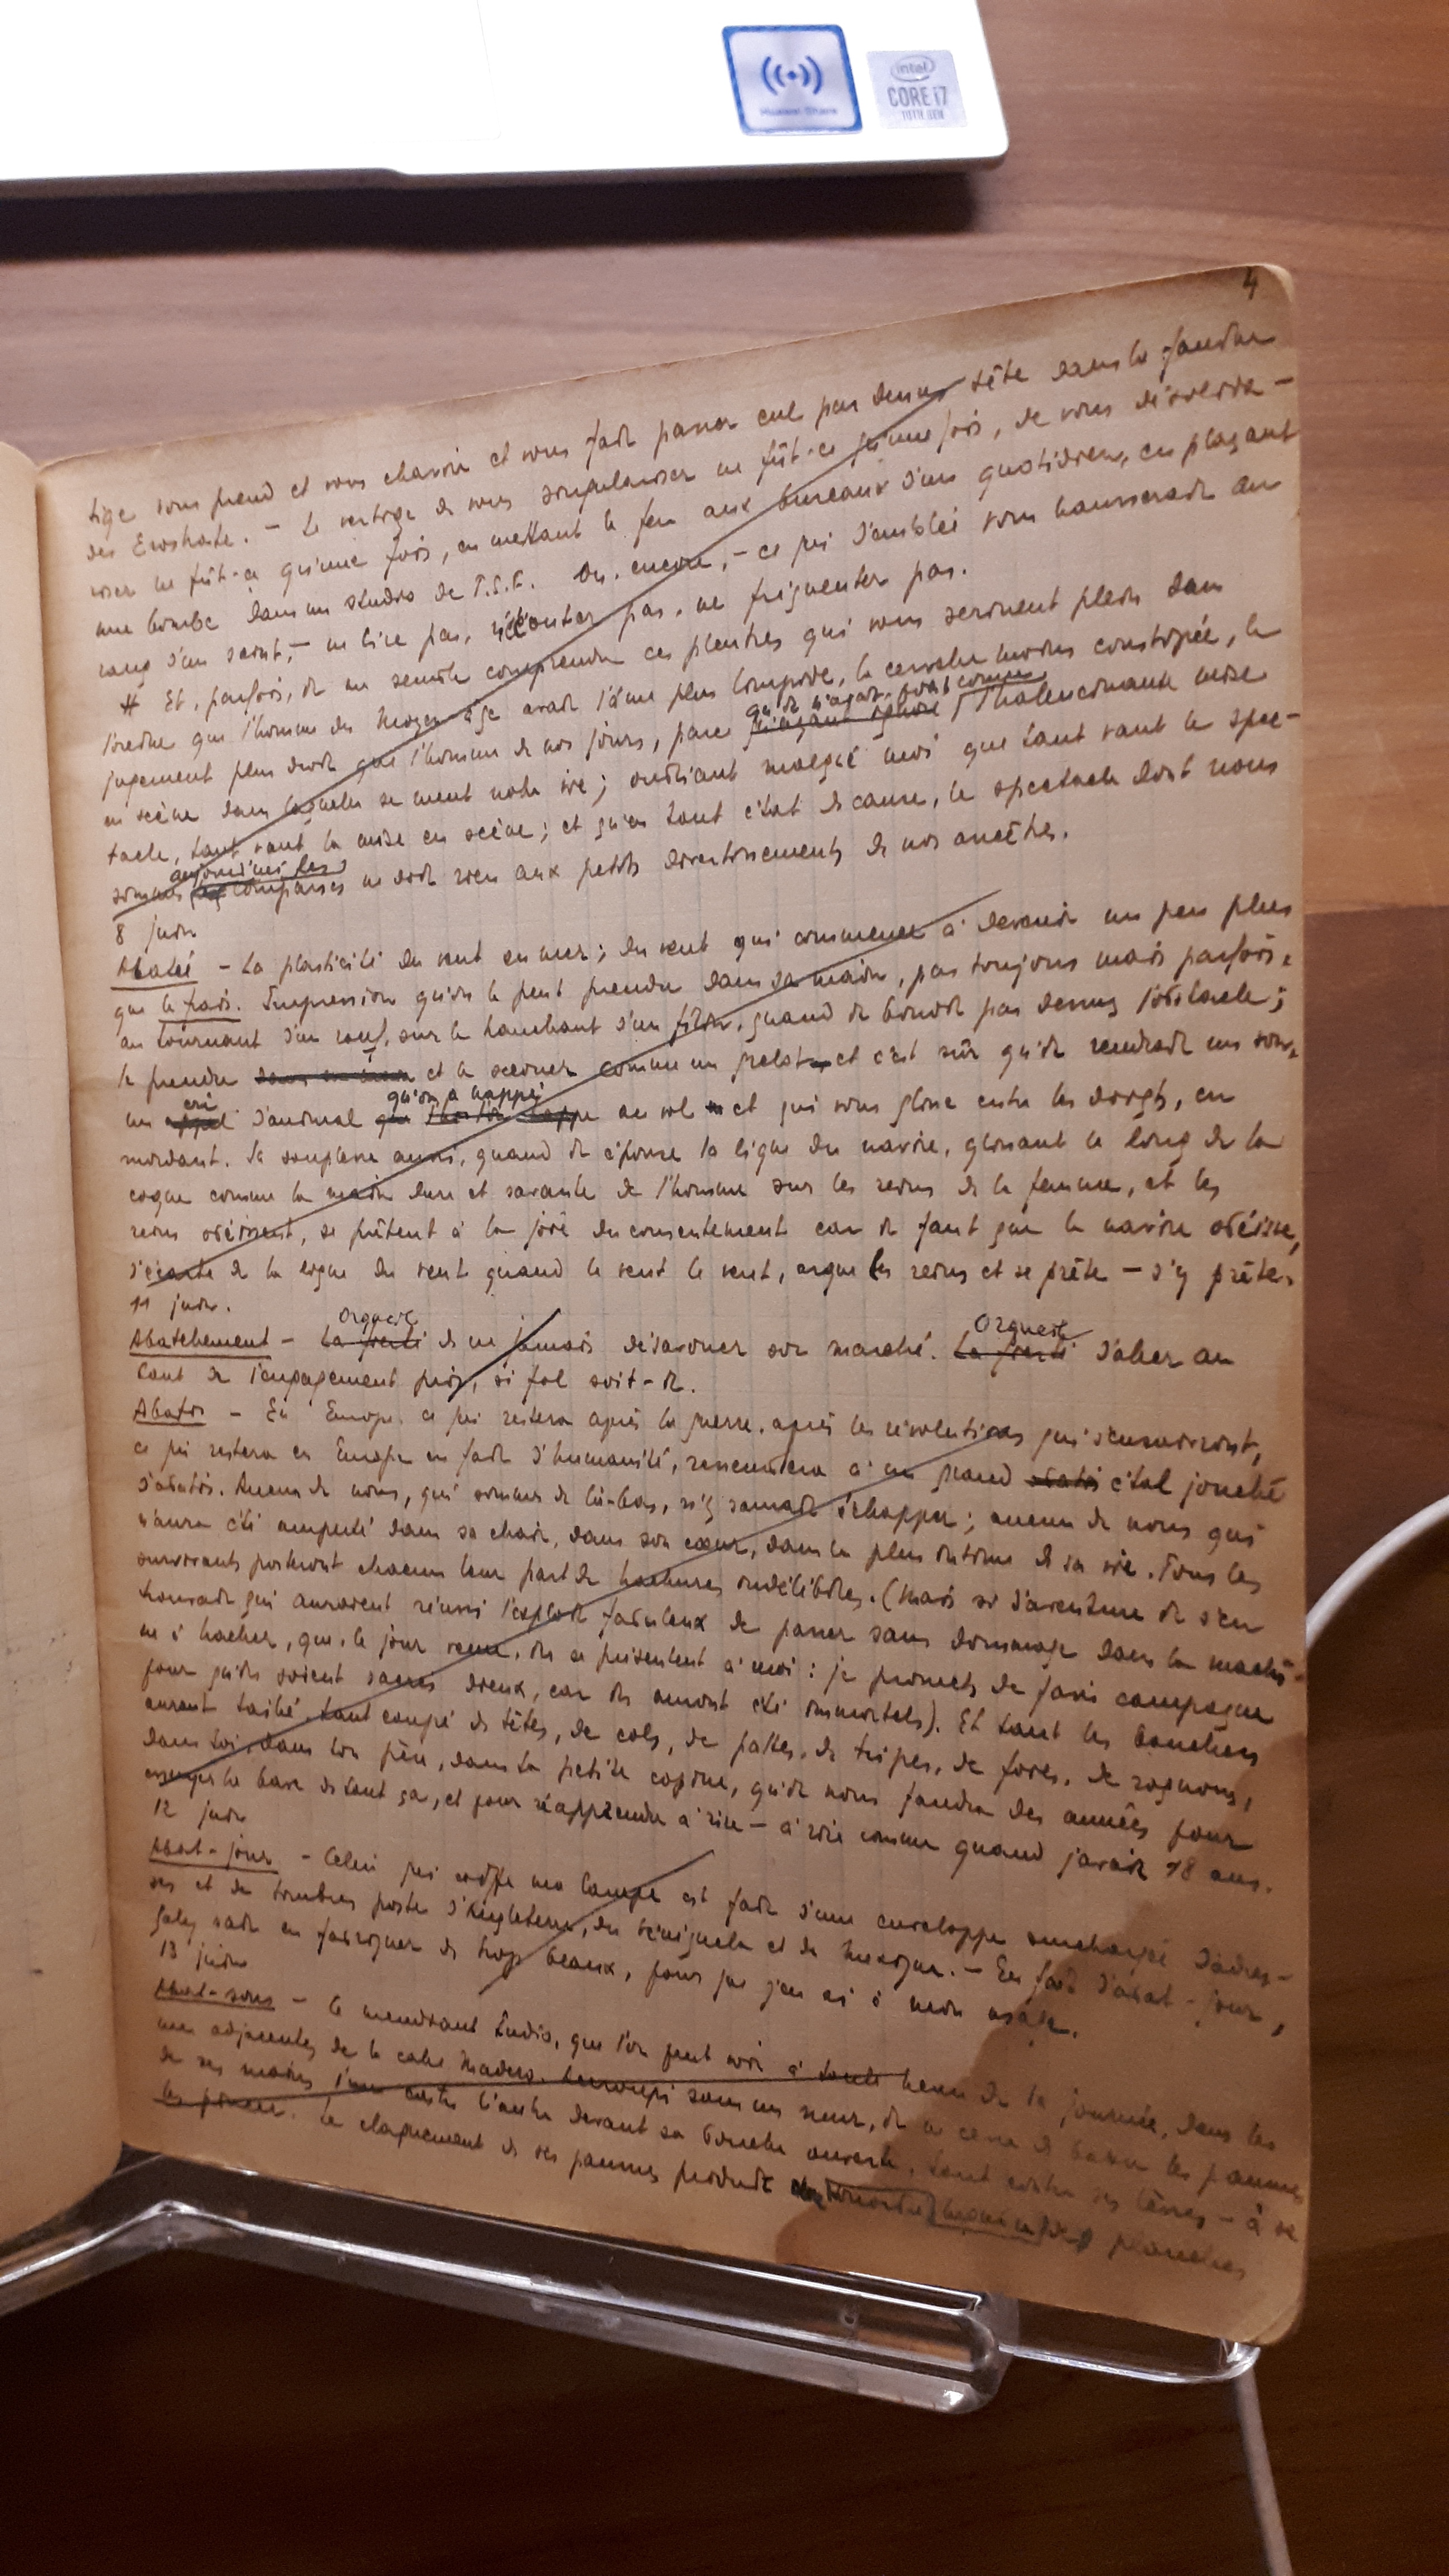 Huawei Share
intel
CORE i7
10TH GEN
4
tige vous prend et vous charrie et vous fait passer cul par dessus tête dans la foudre
des Erostrate. – Le vertige de vous singulariser ne fût-ce qu'une fois, de vous
ne fût-ce qu'une fois, en mettant le feu aux bureaux d'un quotidien, en plaçant
une bombe dans un studio de T.S.F. Ou, encore, – ce qui d'emblée vous hausserait au
rang d'un saint, – ne lire pas, n'écouter pas, ne fréquenter pas.
# Et, parfois, il me semble comprendre ces pleutres qui vous serinent plein dans
l'oreille que l'homme du Moyen âge avait l'âme plus limpide, la cervelle moins constipée, le
jugement plus droit que l'homme de nos jours, parce qu'il n'avait point connu l'hallucinante mise
en scène dans laquelle se meut notre vie ; oubliant malgré moi que tant vaut le spec-
tacle, tant vaut la mise en scène ; et qu'en tout état de cause, le spectacle dont nous
sommes aujourd'hui les comparses ne doit rien aux petits divertissements de nos ancêtres.
8 juin
– La plasticité du vent en mer ; du vent qui commence à devenir un peu plus
que le frais. Impression qu'on le peut prendre dans sa main, pas toujours mais parfois,
au tournant d'un rouf, sur le tranchant d'un filin, quand il bondit par dessus l'obstacle ;
le prendre et le secouer comme un grelot et c'est sûr qu'il rendrait un son,
un cri d'animal qu'on a happé au vol et qui vous glisse entre les doigts, en
mordant. Sa souplesse aussi, quand il épouse la ligne du navire, glissant le long de la
coque comme la main dure et savante de l'homme sur les reins de la femme, et les
reins obéissent, se prêtent à la joie du consentement car il faut que le navire obéisse,
s'écarte de la ligne du vent quand le vent le veut, arque les reins et se prête – s'y prête.
11 juin.
Abatchement – Orgueil de ne jamais désavouer son marché. Orgueil d'aller au
bout de l'engagement pris, si fol soit-il.
Abatis – En Europe, ce qui restera après la guerre, après les révolutions qui s'ensuivront,
ce qui restera en Europe en fait d'humanité, ressemblera à un grand étal jonché
d'abatis. Aucun de nous, qui sommes de là-bas, n'y saurait échapper ; aucun de nous qui
n'aura été amputé dans sa chair, dans son cœur, dans le plus intime de sa vie. Tous les
survivants porteront chacun leur part de hachures indélébiles. (Mais si d'aventure il s'en
trouvait qui auraient réussi l'exploit fabuleux de passer sans dommage dans la machi-
ne à hacher, que, le jour venu, ils se présentent à moi : je promets de faire campagne
pour qu'ils soient sacrés dieux, car ils auront été immortels). Et tant les bouchers
auront taillé, tant coupé de têtes, de cols, de pattes, de tripes, de foies, de rognons,
dans toi, dans ton père, dans ta petite copine, qu'il nous faudra des années pour
essuyer la bave de tout ça, et pour réapprendre à rire – à rire comme quand j'avais 18 ans.
12 juin
Abat-jour – Celui qui coiffe ma lampe est fait d'une enveloppe surchargée d'adres-
ses et de timbres poste d'Angleterre, du Vénézuela et du Mexique. – En fait d'abat-jour,
Galy sait en fabriquer de trop beaux, pour que j'en aie à mon usage.
13 juin
Abat-sons – Le mendiant Indio, que l'on peut voir à toute heure de la journée, dans les
rues adjacentes de la calle Madero. Accroupi sous un mur, il ne cesse de battre les paumes
de ses mains l'une contre l'autre devant sa bouche ouverte, tout contre ses lèvres – à se
Le claquement de ses paumes produit planches